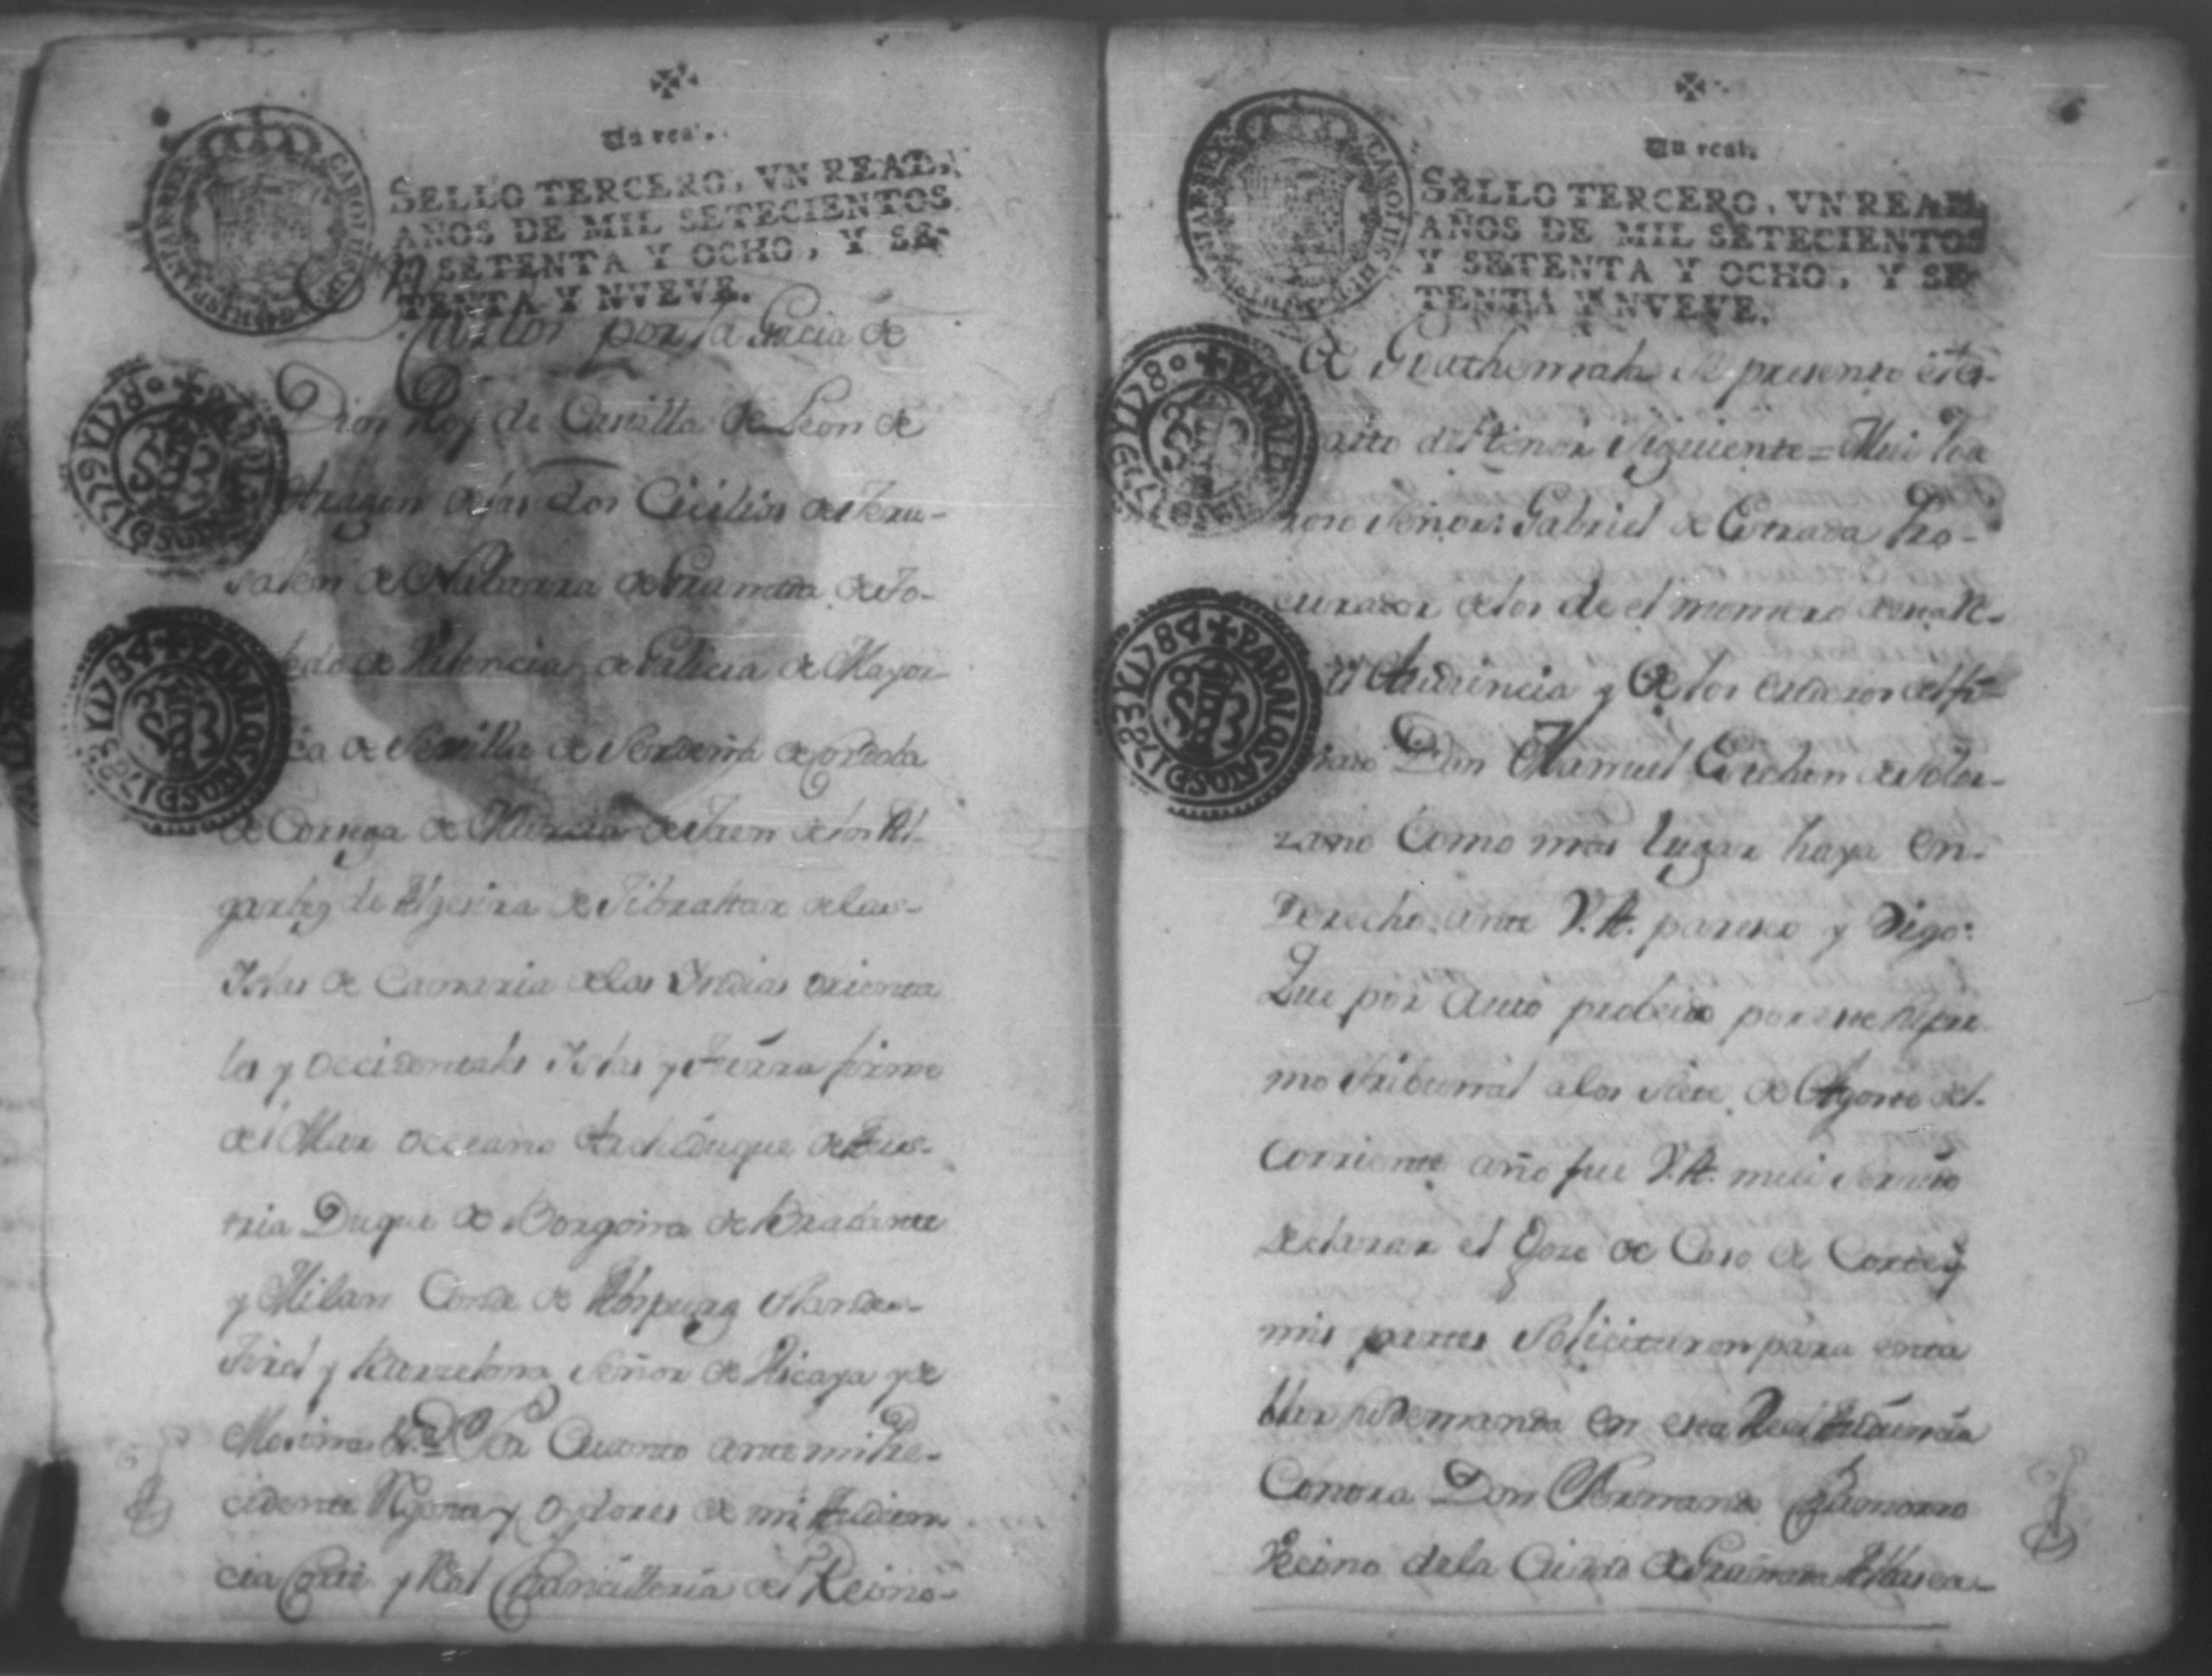 Un real.
SELLO TERCERO, VN REAL,
AÑOS DE MIL SETECIENTOS
Y SETENTA Y OCHO, Y SE-
TENTA Y NVEVE.
Carlos por la Gracia de
Dios Rey de Castilla de Leon de
Aragon de las dos Cicilias de Jeru-
salen de Nabarra de Granada de To-
ledo de Valencia de Galicia de Mayor
ca de Sevilla de Serdeña de Cordoba
de Corsega de Murcia de Jaen de los Al-
garbes de Algesira de Gibraltar de las
Islas de Canaria de las Indias orienta
les y occidentales Islas y tierra firme
del Mar occeano Archiduque de Aus-
tria Duque de Borgoña de Brabante
y Milan Conde de Abspurg Flandes
Tirol y Barzelona Señor de Vicaya y de
Molina &a. Por Quanto ante mi Pre-
cidente Regente y oydores de mi Audien
cia Corte y Rl Chancilleria del Reino
Un real.
SELLO TERCERO, VN REAL
AÑOS DE MIL SETECIENTOS
Y SETENTA Y OCHO, Y SE-
TENTA Y NVEVE.
de Goathemala se presento escr-
ipto del tenor siguiente = Mui Pode
roso Señor: Gabriel de Estrada Pro-
curador de los de el numero de esta R-
l Audiencia y de los erederos del fi-
nado Don Manuel Estehan de Solor-
zano Como mas lugar haya en
Derecho ante V.A. paresco y Digo:
Que por Auto probeido por este supre
mo tribunal a los siete de Agosto del
Corriente año fue V.A. mui servido
declarar el Goze de Caso de Corte q
mis partes solicitaron para enta
blar su demanda en esta Real Audiencia
Contra Don Fernando Chamorro
Vecino de la Ciudad de Granada
PARA LOS AÑOS D 1779 Y 1778
PARA LOS AÑOS D 1783 Y 1784
PARA LOS AÑOS D 1779 Y 1778
PARA LOS AÑOS D 1783 Y 1784